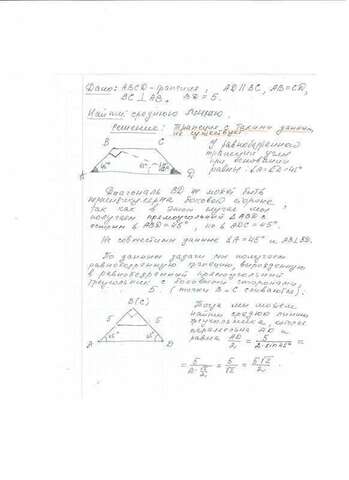 Дано: ABCD - трапеция, AD || BC, AB = CD,
BC ⊥ AB. = 5.
Найти среднюю линию.
Решение: Трапеции с такими данными
не существует
B C
45°
A D
У равнобедренной
трапеции углы
при основании
равны: ∠A = ∠D = 45°
Диагональ BD не может быть
перпендикулярна боковой стороне,
так как в этом случае мы
получаем прямоугольный ΔABD с
острым ∠ ABD = 45°, но ∠ ADC = 45°.
Не совместимы данные ∠A = 45° и AB ⊥ BD.
По данным задачи мы получаем
равнобедренную трапецию, вырожденную
в равнобедренный прямоугольный
треугольник с боковыми сторонами
5. (точки B и C сливаются).
B(C)
5 5
45° 45°
A D
Тогда мы можем
найти среднюю линию
треугольника, которая
параллельна AD и
равна AD/2 = 5/(2·sin45°) =
= 5/(2·√2/2) = 5/√2 = 5√2/2.